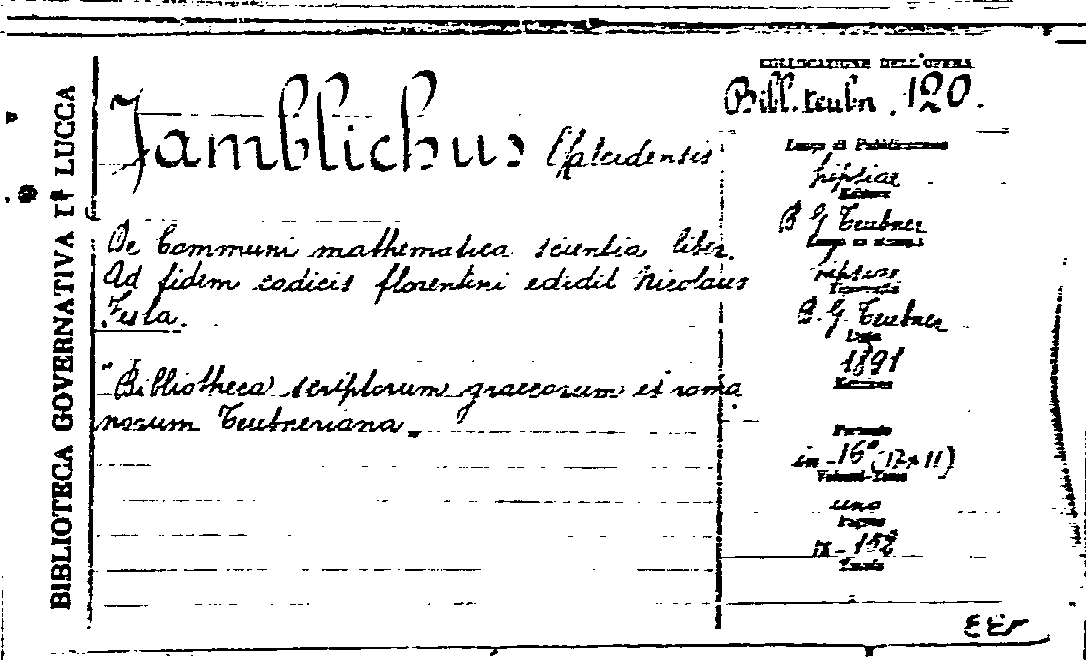 BIBLIOTECA GOVERNATIVA DI LUCCA
Jamblichus Chalcidensis
De Communi mathematica scientia liber.
Ad fidem codicis florentini edidit Nicolaus
Festa.
"Bibliotheca scriptorum graecorum et roma
norum Teubneriana.
COLLOCAZIONE DELL'OPERA
Bibl. teubn. 120.
Luogo di Pubblicazione
Lipsiae
Editore
B G Teubner
Luogo di stampa
Lipsiae
B. G. Teubner
Data
1891
Edizione
Formato
in-16° (17×11)
Volumi-Tomi
uno
Pagine
IX-152
Tavole